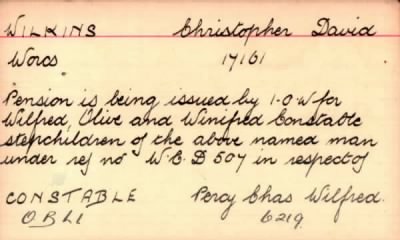 WILKINS Christopher David
Worcs 17161
Pension is being issued by 1-O-W for
Wilfred, Olive and Winifred Constable
stepchildren of the above named man
under ref no W.C.D 507 in respect of
CONSTABLE Percy Chas Wilfred.
O B L I 6219.